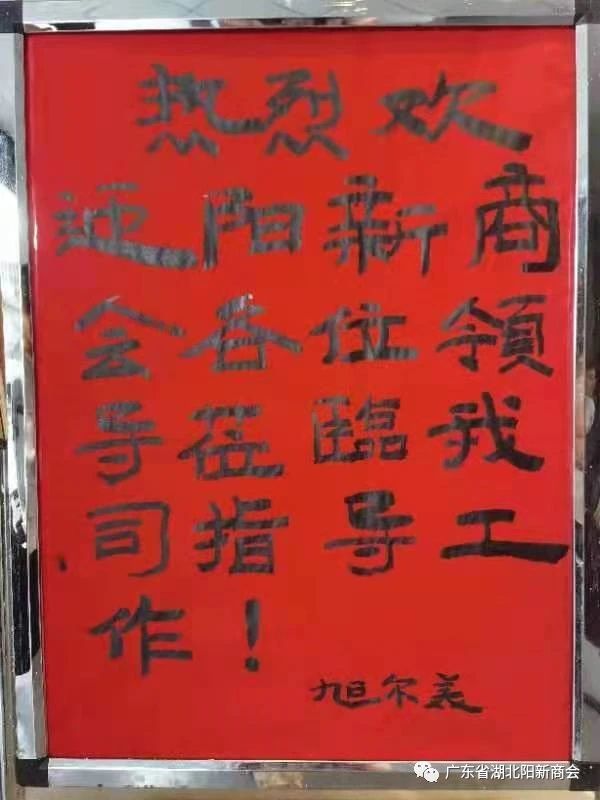 热烈欢
迎阳新商
会各位領
导莅臨我
司指导工
作！
旭尔美
广东省湖北阳新商会